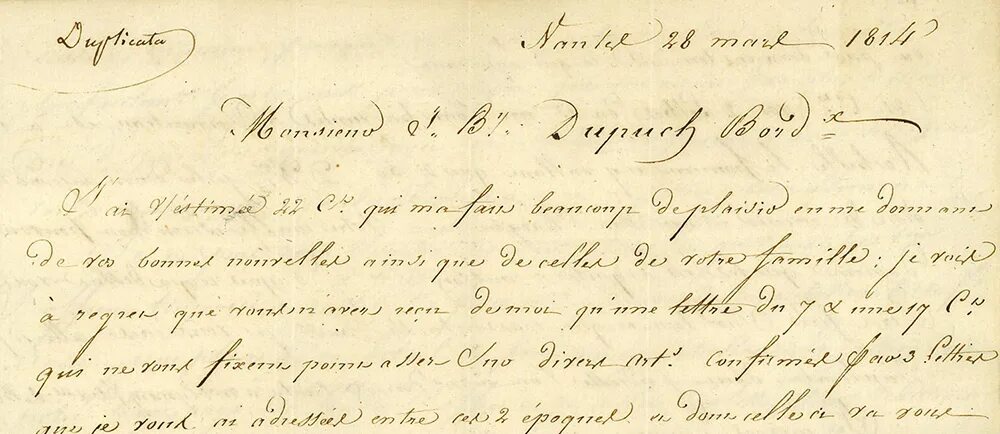 Duplicata
Nantes 28 mars 1814
Monsieur J. Bte. Dupuch Bordx
J'ai V/estimée 22 Ct. qui m'a fait beaucoup de plaisir en me donnant
de vos bonnes nouvelles ainsi que de celles de votre famille; je vois
à regret que vous n'avez reçu de moi qu'une lettre du 7 & une 17 Ct.
qui ne vous fixent point assez sur divers arts. confirmés par 3 lettres
que je vous ai adressées entre ces 2 époques et dont celle ci va vous